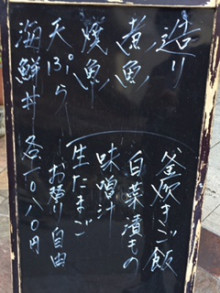 造り
煮魚
焼魚
天ぷら
海鮮丼
各1080円
釜炊きご飯
白菜漬もの
味噌汁
生たまご
お替り自由